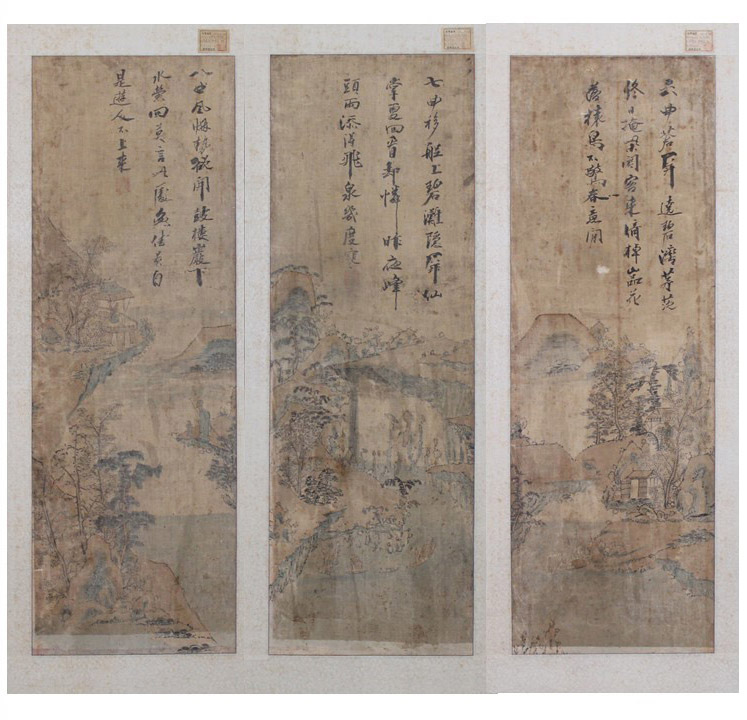 六曲蒼屏遶碧灣茅茨
終日掩柴関客來倚棹嵓花
落猿鳥不驚春意閑
七曲移船上碧灘隱屏仙
掌更回看却憐昨夜峰
頭雨添得飛泉幾度寒
八曲風烟勢欲開鼓樓巖下
水縈回莫言此處無佳景自
是遊人不上來